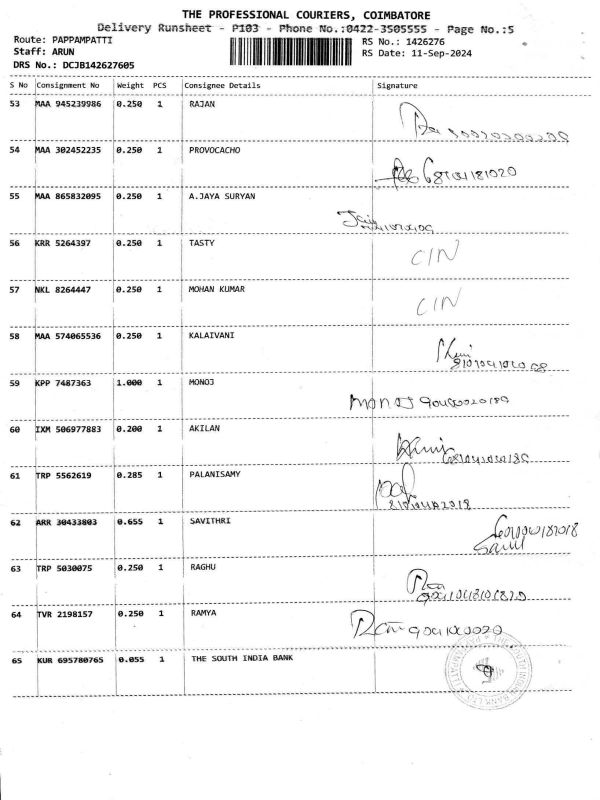 THE PROFESSIONAL COURIERS, COIMBATORE
Delivery Runsheet - P103 - Phone No.:0422-3505555 - Page No.:5
Route: PAPPAMPATTI RS No.: 1426276
Staff: ARUN RS Date: 11-Sep-2024
DRS No.: DCJB142627605
S No Consignment No Weight PCS Consignee Details Signature
53 MAA 945239986 0.250 1 RAJAN
54 MAA 302452235 0.250 1 PROVOCACHO
55 MAA 865832095 0.250 1 A.JAYA SURYAN
56 KRR 5264397 0.250 1 TASTY CIN
57 NKL 8264447 0.250 1 MOHAN KUMAR CIN
58 MAA 574065536 0.250 1 KALAIVANI
59 KPP 7487363 1.000 1 MONOJ MONOJ
60 IXM 506977883 0.200 1 AKILAN
61 TRP 5562619 0.285 1 PALANISAMY
62 ARR 30433803 0.655 1 SAVITHRI
63 TRP 5030075 0.250 1 RAGHU
64 TVR 2198157 0.250 1 RAMYA
65 KUR 695780765 0.055 1 THE SOUTH INDIA BANK